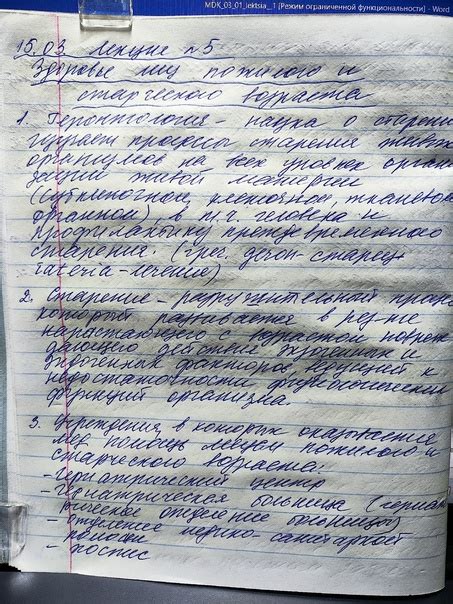 MDK_03_01_lektsia_1 [Режим ограниченной функциональности] - Word
15.03 Лекция №5
Здоровье лиц пожилого и
старческого возраста
1. Геронтология - наука о старени
процессы старения живых
организмов на всех уровнях органи
зации живой материи
(субклеточном, клеточном, тканевом
органном) в т.ч. человека и
профилактику преждевременного
старения. (греч. герон - старец
- лечение)
2. Старение - разрушительный проце
который развивается в рез-те
нарастающего с возрастом повреж
дающего действия экзогенных и
эндогенных факторов, ведущий к
недостаточности физиологических
функций организма.
3. Учреждения в которых оказывается
мед помощь лицам пожилого и
старческого возраста:
- Гериатрический центр
- больница (гериат
рическое отделение больницы)
- отделение медико-санитарной
помощи
- хоспис